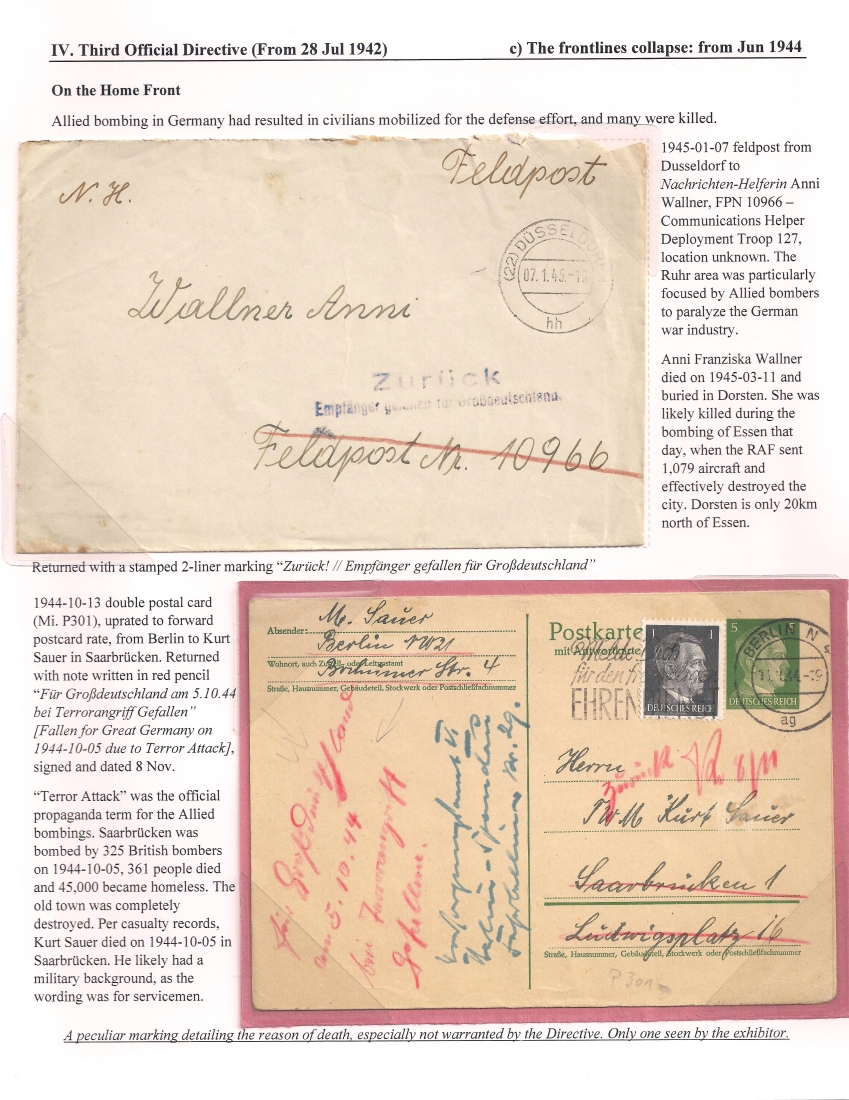 IV. Third Official Directive (From 28 Jul 1942) c) The frontlines collapse: from Jun 1944
On the Home Front
Allied bombing in Germany had resulted in civilians mobilized for the defense effort, and many were killed.
N. H.
Feldpost
(22) DÜSSELDORF
07.1.45.-1
hh
Wallner Anni
Zurück
Empfänger gefallen für Großdeutschland.
Feldpost Nr. 10966
1945-01-07 feldpost from
Dusseldorf to
Nachrichten-Helferin Anni
Wallner, FPN 10966 –
Communications Helper
Deployment Troop 127,
location unknown. The
Ruhr area was particularly
focused by Allied bombers
to paralyze the German
war industry.
Anni Franziska Wallner
died on 1945-03-11 and
buried in Dorsten. She was
likely killed during the
bombing of Essen that
day, when the RAF sent
1,079 aircraft and
effectively destroyed the
city. Dorsten is only 20km
north of Essen.
Returned with a stamped 2-liner marking “Zurück! // Empfänger gefallen für Großdeutschland”
1944-10-13 double postal card
(Mi. P301), uprated to forward
postcard rate, from Berlin to Kurt
Sauer in Saarbrücken. Returned
with note written in red pencil
“Für Großdeutschland am 5.10.44
bei Terrorangriff Gefallen”
[Fallen for Great Germany on
1944-10-05 due to Terror Attack],
signed and dated 8 Nov.
“Terror Attack” was the official
propaganda term for the Allied
bombings. Saarbrücken was
bombed by 325 British bombers
on 1944-10-05, 361 people died
and 45,000 became homeless. The
old town was completely
destroyed. Per casualty records,
Kurt Sauer died on 1944-10-05 in
Saarbrücken. He likely had a
military background, as the
wording was for servicemen.
M. Sauer
Absender:
Berlin NW21
Wohnort, auch Zustell- oder Leitpostamt
Str. 4
Straße, Hausnummer, Gebäudeteil, Stockwerk oder Postschließfachnummer
Postkarte
mit Antwortkarte
EHREN
1 1
DEUTSCHES REICH
5 5
DEUTSCHES REICH
BERLIN N
ag
Für Großdeutschland
am 5.10.44
bei Terrorangriff
Gefallen.
Nr. 29.
Herrn
Zurück 8/11
Kurt Sauer
Saarbrücken 1
Ludwigsplatz 16
Straße, Hausnummer, Gebäudeteil, Stockwerk oder Postschließfachnummer
P 301
A peculiar marking detailing the reason of death, especially not warranted by the Directive. Only one seen by the exhibitor.